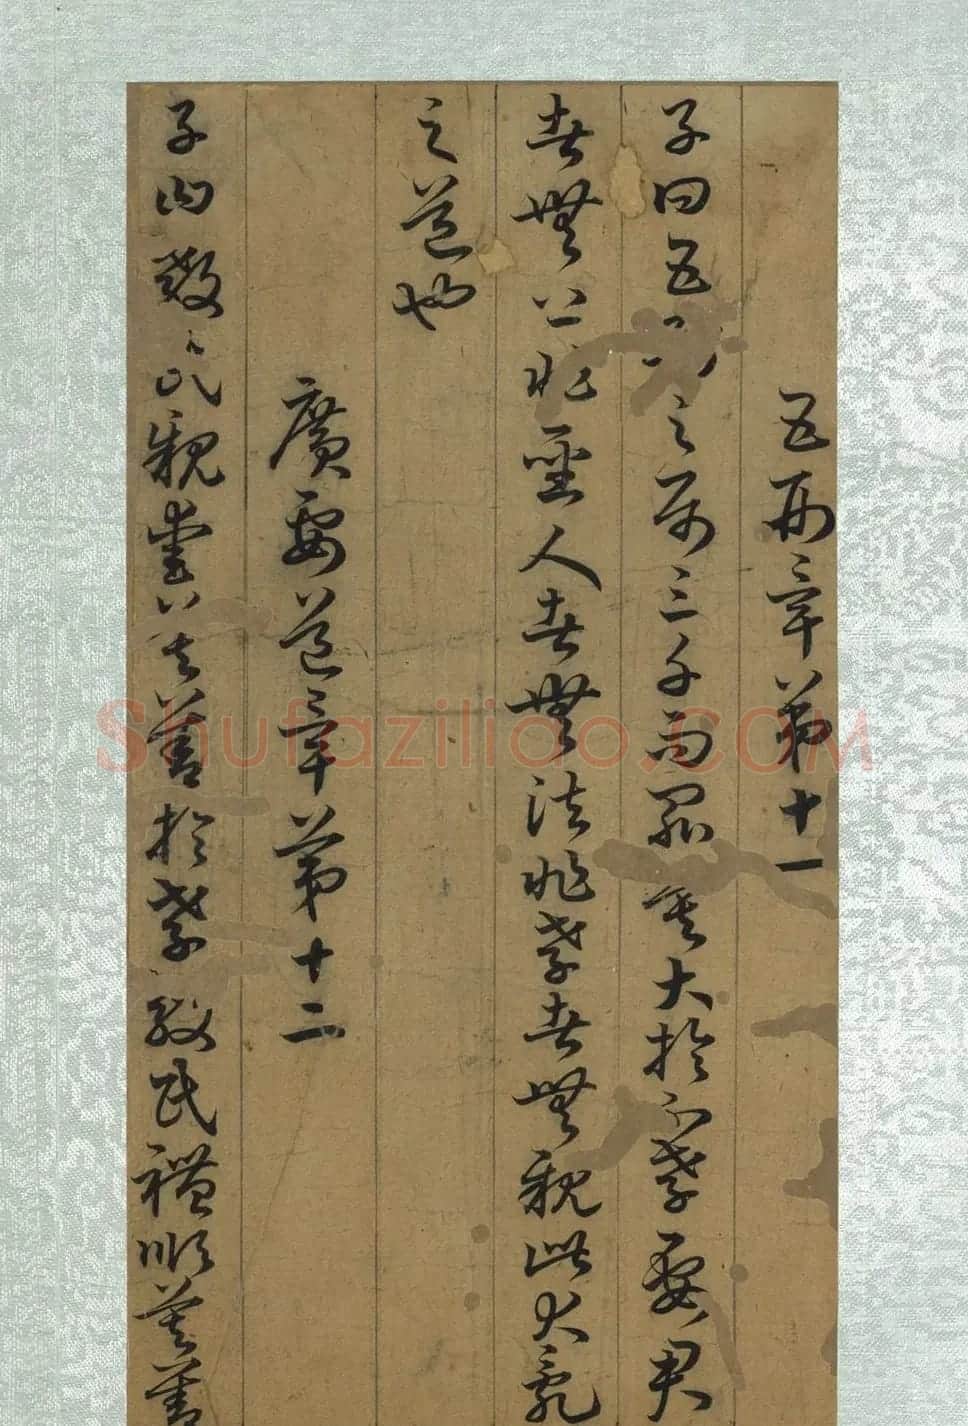 五刑章第十一
子曰五刑之屬三千而罪莫大於不孝要君
者無上非聖人者無法非孝者無親此大亂
之道也
廣要道章第十二
子曰教民親愛莫善於孝教民禮順莫善
Shufaziliao.COM